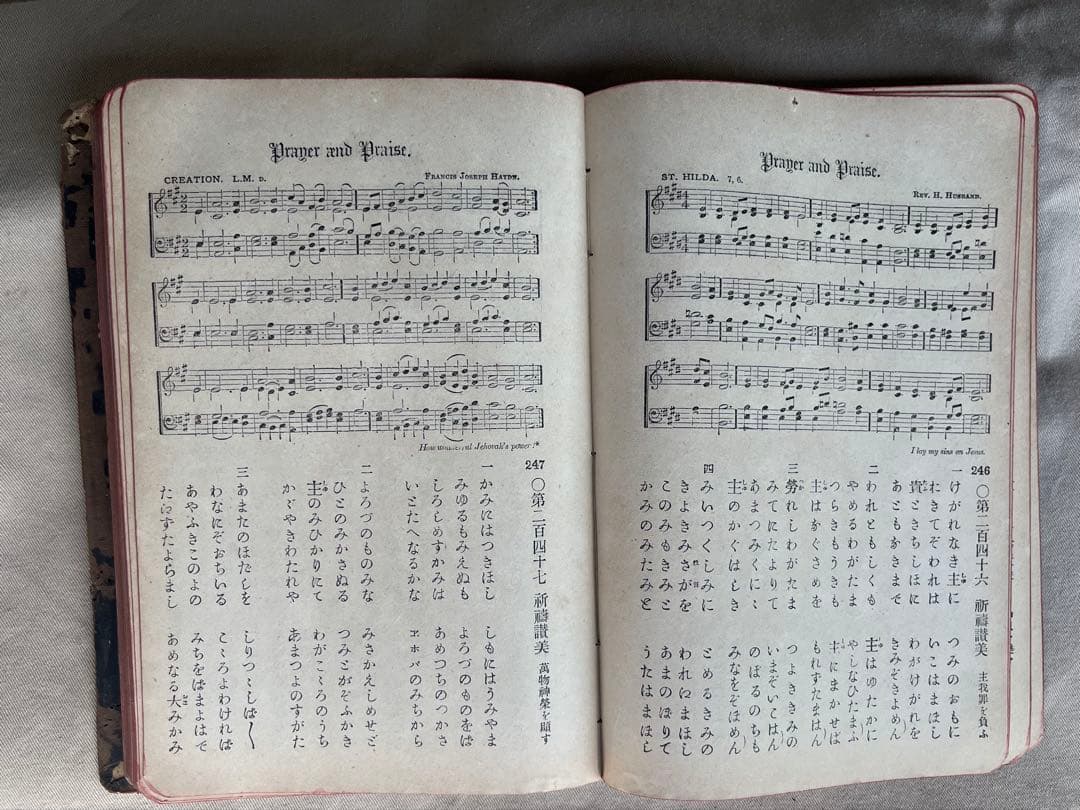 Prayer and Praise.
ST. HILDA. 7, 6.
REV. H. HUSBAND.
I lay my sins on Jesus.
246
〇第二百四十六 祈禱讃美 主我罪を負ふ
一 けがれなき主に つみのおもに
きてぞわれは いこはまほし
貴ときちしほに わがけがれを
あともおかまで きみぞきよめん
二 われともしくも 主はゆたかに
やめるわがたま やしなひたまふ
つらきもうきも 主にまかせば
主はなぐさめを もれずたまはん
三 勞れしわがたま つよききみの
みてにたよりて いまぞいこはん
あまつみくにに のぼるのちも
主のかぐはしき みなをぞほめん
四 みいつくしみに とめるきみの
きよきみさがを われにまほし
このみもきみと あまのぼりて
かみのみたみと うたはまほし
Prayer and Praise.
CREATION. L.M. D.
FRANCIS JOSEPH HAYDN.
How wonderful Jehovah's power!*
247
〇第二百四十七 祈禱讃美 萬物神榮を顯す
一 かみにはつきほし しもにはうみやま
みゆるもみえぬも よろづのものをば
しろしめすかみは あめつちのつかさ
いとたへなるかな ヱホバのみちから
二 よろづのものみな みさかえしめせど
ひとのみかさぬる つみとがぞふかき
主のみひかりにて わがこゝろのうち
かゞやきわたれや あまつよのすがた
三 あまたのほだしを しりつゝしば〱
わなにぞおちいる こゝろよわければ
あやふきこのよの みちをばまよはで
たらすたよらまし あめなる大みかみ